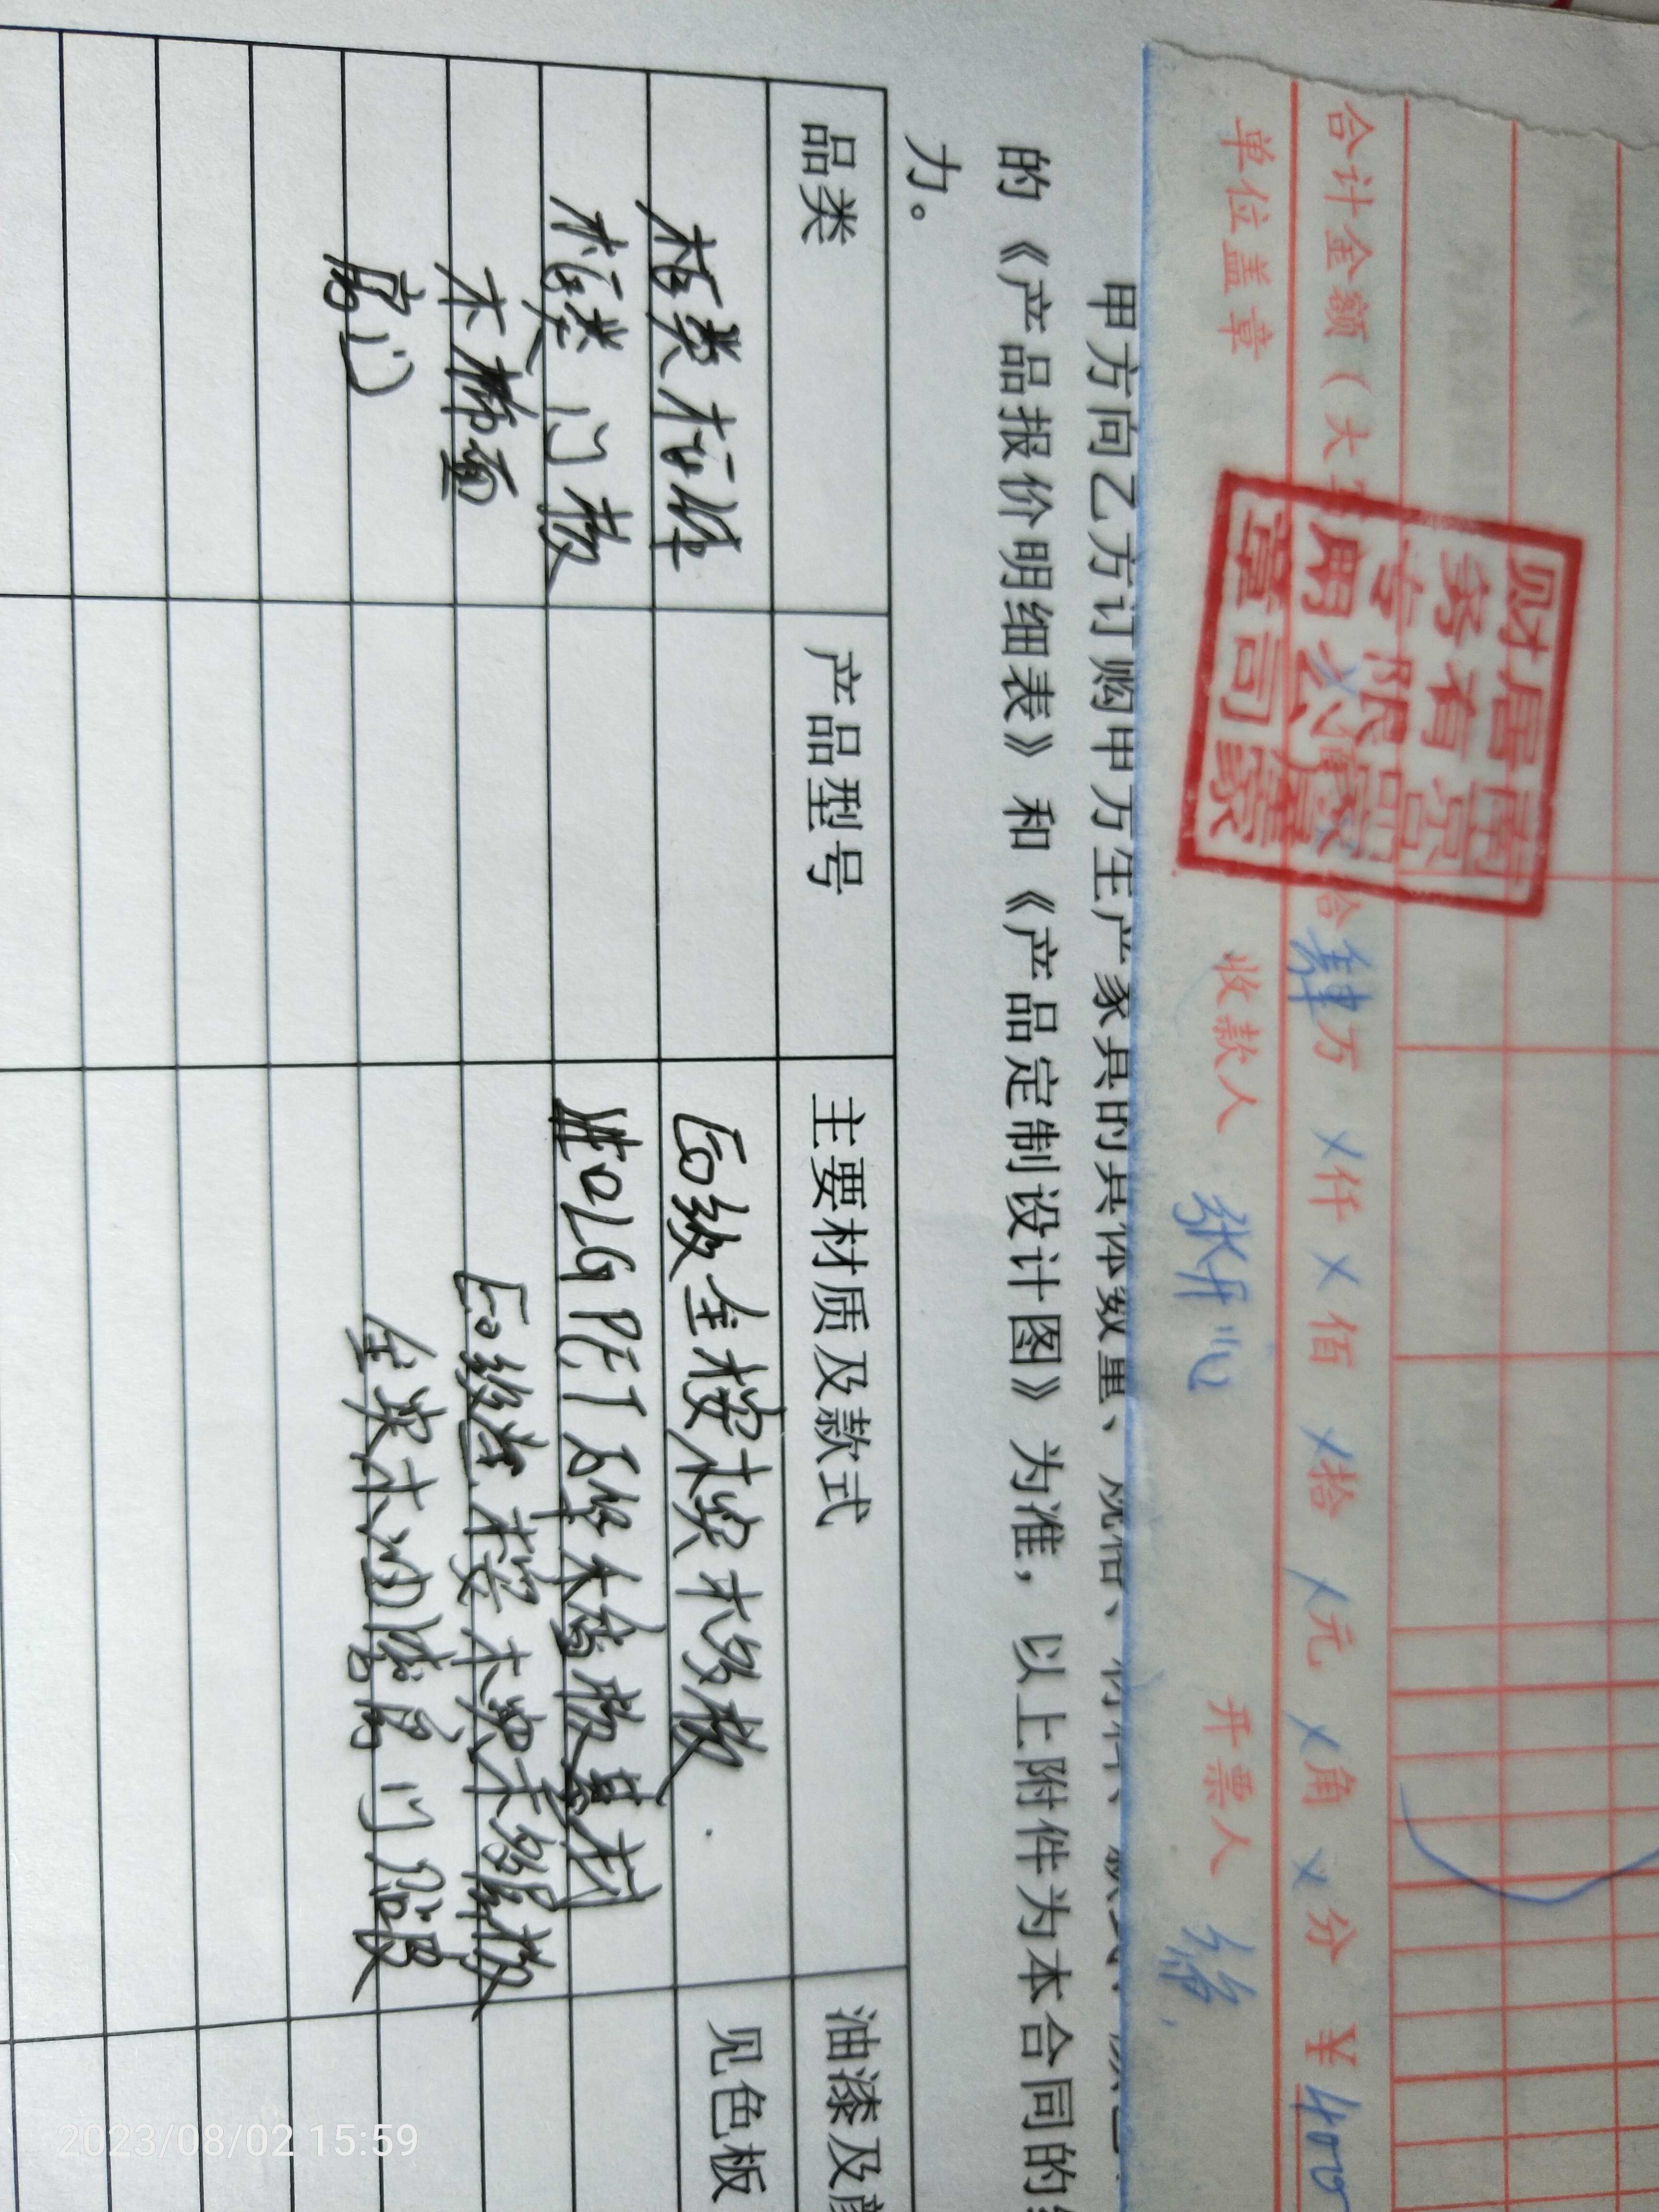 合计金额（大
肆万 x仟 x佰 x拾 x元 x角 x分 ¥ 400
单位盖章
收款人
开票人
财居南
务有京
专限品
用公
章司
甲方向乙方订购甲方生产家具的具体数量、规格、材料、款式、颜色
的《产品报价明细表》和《产品定制设计图》为准，以上附件为本合同的
力。
品类 产品型号 主要材质及款式 油漆及颜
柜类柜体 E0级全桉木实木多层板 见色板
柜类门板 进口LG PET
木饰面 E0级 桉木实木多层板
房门 全实木油漆房门
2023/08/02 15:59